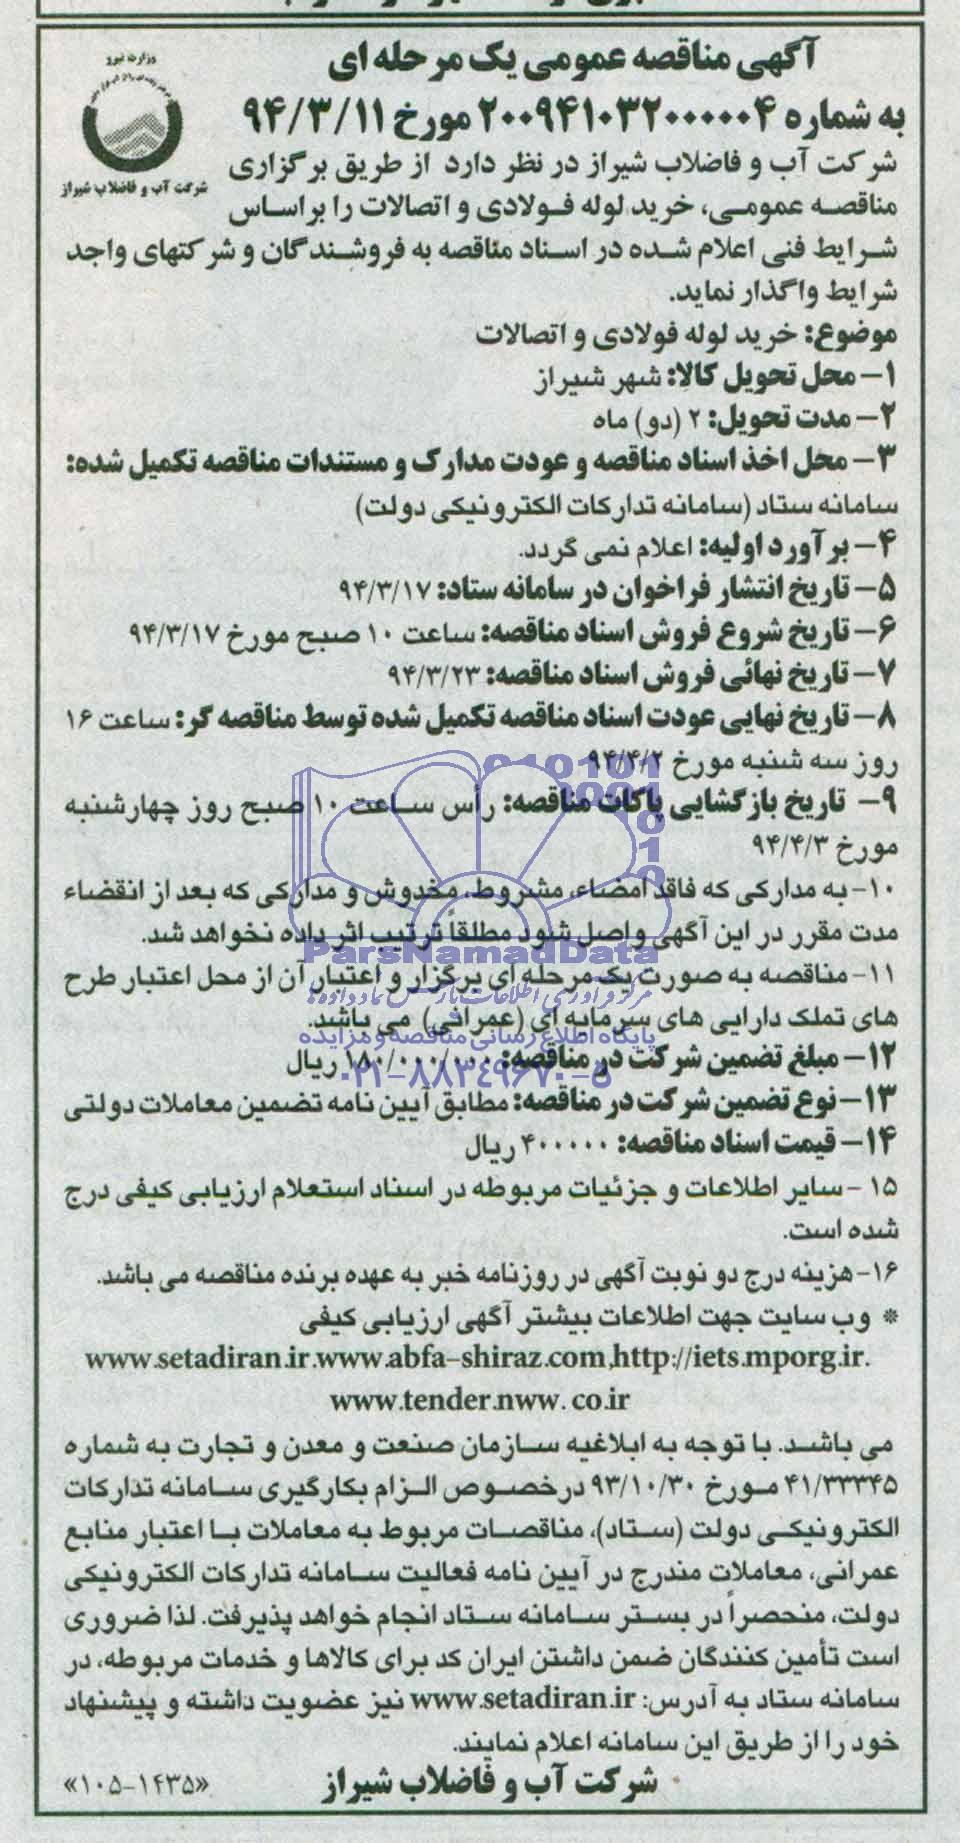 وزارت نیرو
شرکت آب و فاضلاب شیراز
آگهی مناقصه عمومی یک مرحله ای
به شماره ۲۰۰۹۴۱۰۳۲۰۰۰۰۰۴ مورخ ۹۴/۳/۱۱
شرکت آب و فاضلاب شیراز در نظر دارد از طریق برگزاری
مناقصه عمومی، خرید لوله فولادی و اتصالات را براساس
شرایط فنی اعلام شده در اسناد مناقصه به فروشندگان و شرکتهای واجد
شرایط واگذار نماید.
موضوع: خرید لوله فولادی و اتصالات
۱- محل تحویل کالا: شهر شیراز
۲- مدت تحویل: ۲ (دو) ماه
۳- محل اخذ اسناد مناقصه و عودت مدارک و مستندات مناقصه تکمیل شده:
سامانه ستاد (سامانه تدارکات الکترونیکی دولت)
۴- برآورد اولیه: اعلام نمی گردد.
۵- تاریخ انتشار فراخوان در سامانه ستاد: ۹۴/۳/۱۷
۶- تاریخ شروع فروش اسناد مناقصه: ساعت ۱۰ صبح مورخ ۹۴/۳/۱۷
۷- تاریخ نهائی فروش اسناد مناقصه: ۹۴/۳/۲۳
۸- تاریخ نهایی عودت اسناد مناقصه تکمیل شده توسط مناقصه گر: ساعت ۱۶
روز سه شنبه مورخ ۹۴/۴/۲
۹- تاریخ بازگشایی پاکات مناقصه: رأس ساعت ۱۰ صبح روز چهارشنبه
مورخ ۹۴/۴/۳
۱۰- به مدارکی که فاقد امضاء، مشروط، مخدوش و مدارکی که بعد از انقضاء
مدت مقرر در این آگهی واصل شود مطلقاً ترتیب اثر داده نخواهد شد.
ParsNamadData
۱۱- مناقصه به صورت یک مرحله ای برگزار و اعتبار آن از محل اعتبار طرح
مرکز فرآوری اطلاعات پارس نماد داده ها
های تملک دارایی های سرمایه ای (عمرانی) می باشد.
پایگاه اطلاع رسانی مناقصه و مزایده
۱۲- مبلغ تضمین شرکت در مناقصه: ۱۸۰/۰۰۰/۰۰۰ ریال
۰۲۱-۸۸۳۴۹۶۷۰-۵
۱۳- نوع تضمین شرکت در مناقصه: مطابق آیین نامه تضمین معاملات دولتی
۱۴- قیمت اسناد مناقصه: ۴۰۰۰۰۰ ریال
۱۵- سایر اطلاعات و جزئیات مربوطه در اسناد استعلام ارزیابی کیفی درج
شده است.
۱۶- هزینه درج دو نوبت آگهی در روزنامه خبر به عهده برنده مناقصه می باشد.
* وب سایت جهت اطلاعات بیشتر آگهی ارزیابی کیفی
www.setadiran.ir.www.abfa-shiraz.com,http://iets.mporg.ir.
www.tender.nww.co.ir
می باشد. با توجه به ابلاغیه سازمان صنعت و معدن و تجارت به شماره
۴۱/۳۳۳۴۵ مورخ ۹۳/۱۰/۳۰ درخصوص الزام بکارگیری سامانه تدارکات
الکترونیکی دولت (ستاد)، مناقصات مربوط به معاملات با اعتبار منابع
عمرانی، معاملات مندرج در آیین نامه فعالیت سامانه تدارکات الکترونیکی
دولت، منحصراً در بستر سامانه ستاد انجام خواهد پذیرفت. لذا ضروری
است تأمین کنندگان ضمن داشتن ایران کد برای کالاها و خدمات مربوطه، در
سامانه ستاد به آدرس: www.setadiran.ir نیز عضویت داشته و پیشنهاد
خود را از طریق این سامانه اعلام نمایند.
شرکت آب و فاضلاب شیراز
«۱۰۵-۱۴۳۵»